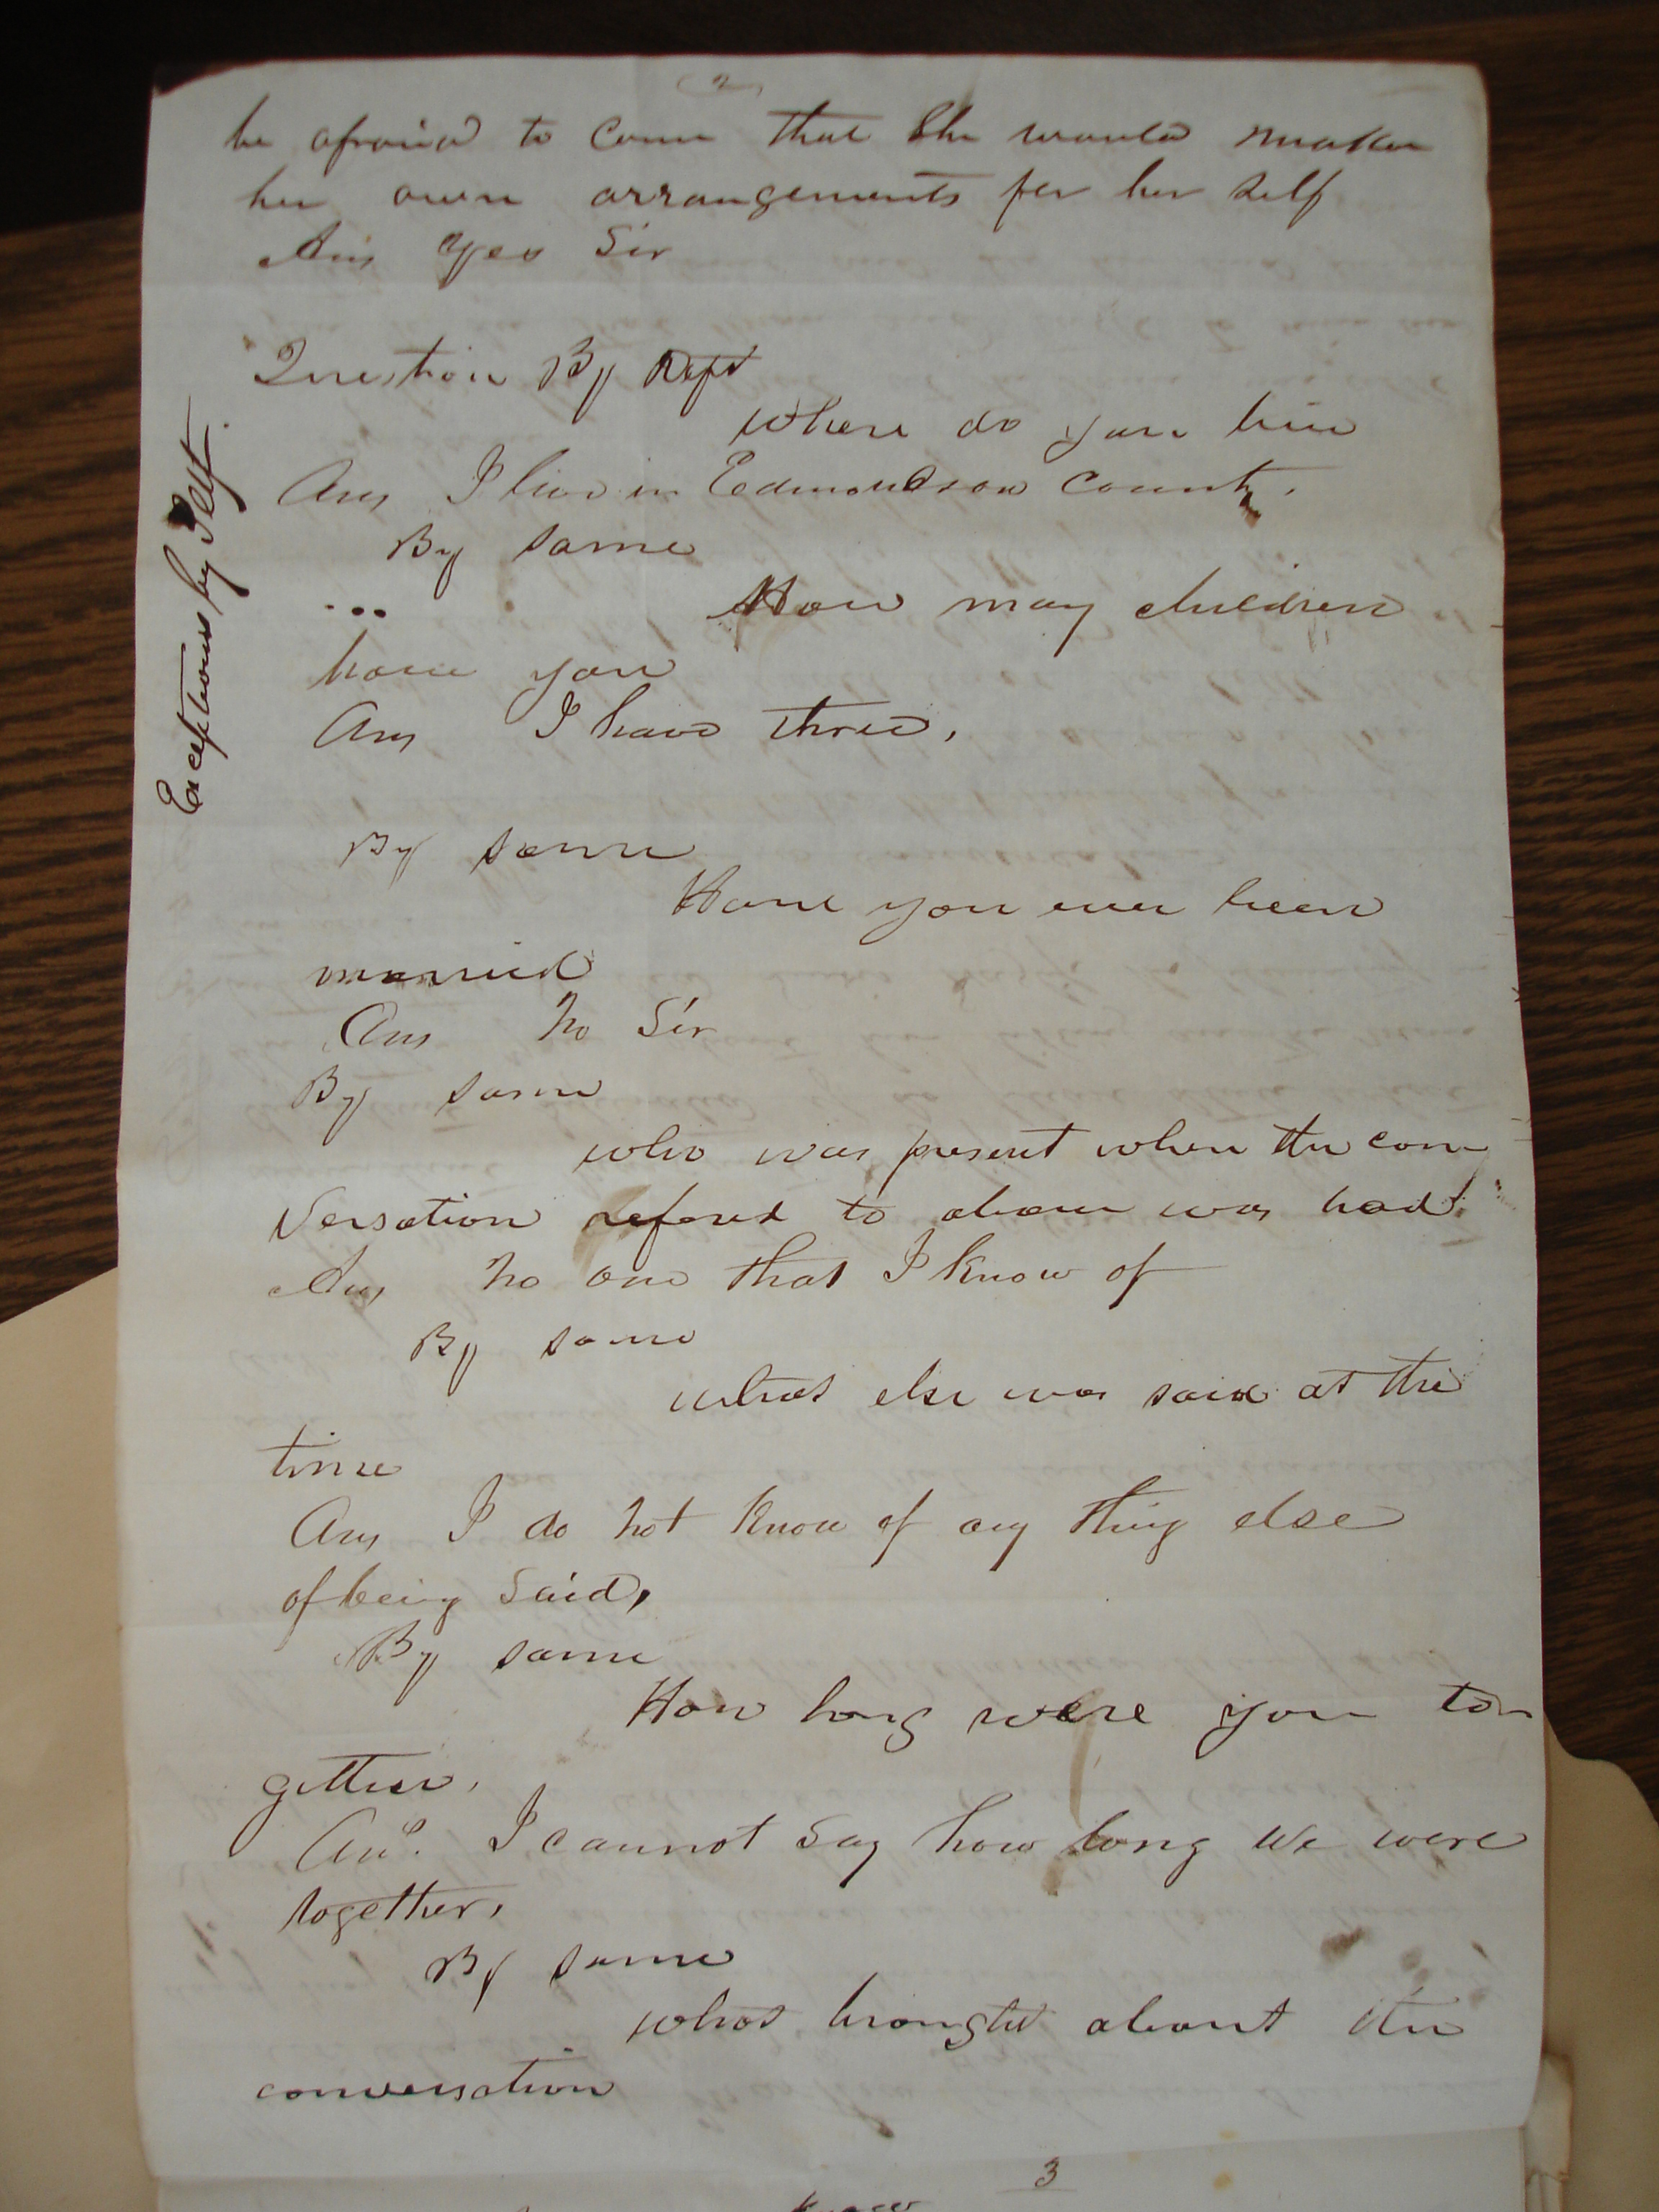 (2)
be afraid to come that She would make
her own arrangements for her self
Ans Yes Sir
Question By Deft
where do you live
Ans I live in Edmondson County.
By same
How may children
have you
Ans I have three,
Exceptions by Plff.
By same
Have you ever been
married
Ans No Sir
By same
who was present when the con
versation refered to above was had.
Ans No one that I know of
By same
what else was said at the
time
Ans I do not know of any thing else
of being Said,
By same
How long were you to
gether.
Ans. I cannot Say how long we were
together,
By same
what brought about the
conversation
3